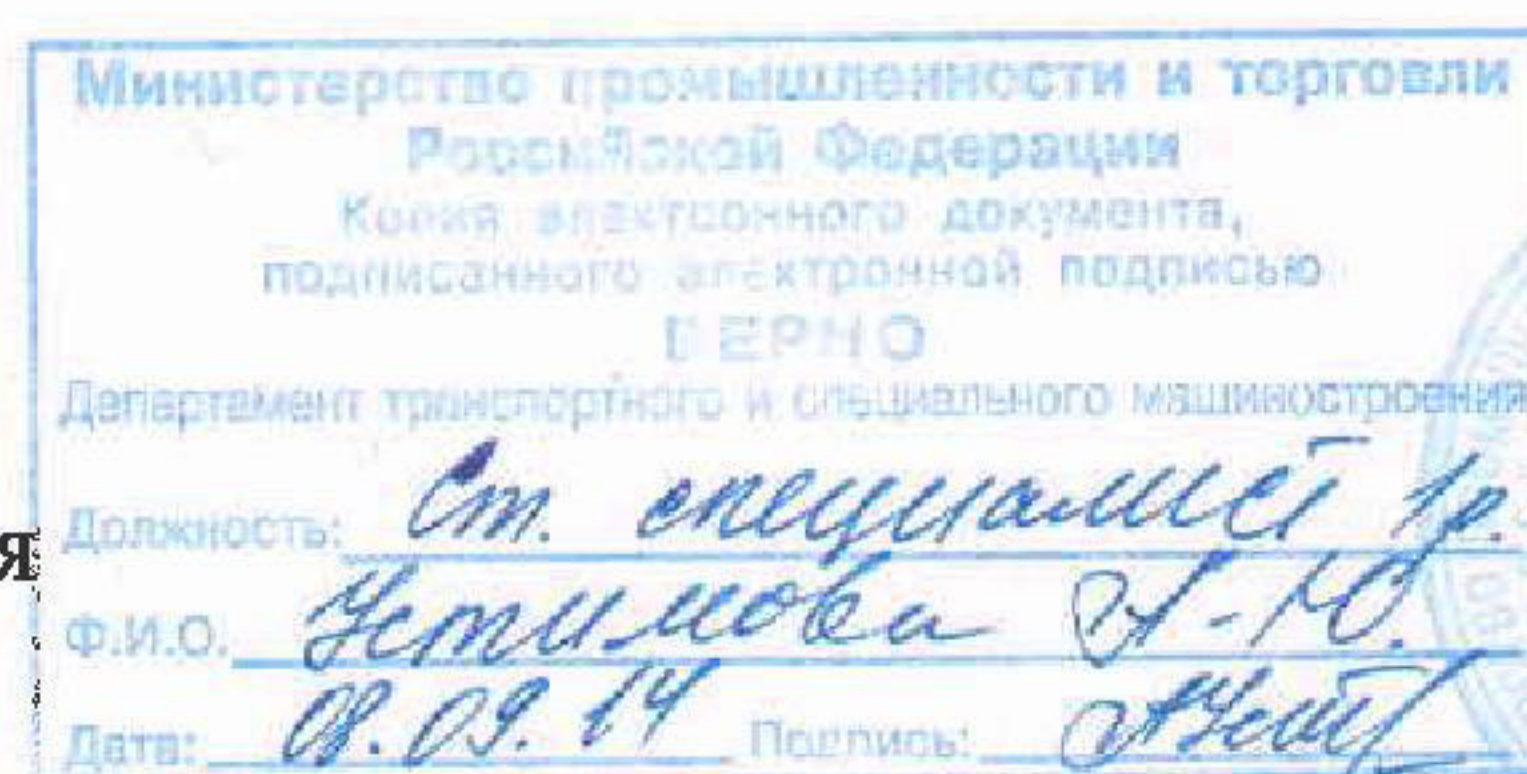 Министерство промышленности и торговли
Российской Федерации
Копия электронного документа,
подписанного электронной подписью
ВЕРНО
Департамент транспортного и специального машиностроения
Должность: Ст. специалист 1р.
я
Ф.И.О. Устимова А.Ю.
Дата: 08.09.14 Подпись: